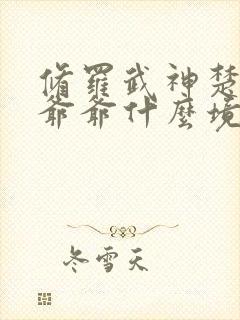 脩羅武神楚
爺爺什麼境
冬雪天